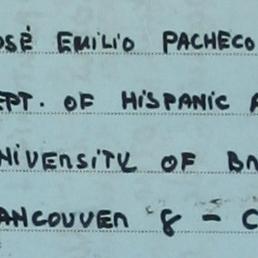 OSÉ EMILIO PACHECO
EPT. OF HISPANIC A
NIVERSITY OF BR
ANCOUVER 8 - C